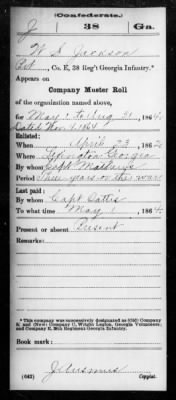 (Confederate.)
J 38 Ga.
W S Jackson
Pvt, Co. E, 38 Reg't Georgia Infantry.*
Appears on
Company Muster Roll
of the organization named above,
for May 1 to Aug 31, 1864.
Dated Nov 4 1864
Enlisted:
When April 23, 186
Where Georgia
By whom Capt Mathews
Period Three years or the war
Last paid:
By whom Capt
To what time May 1, 186
Present or absent Present
Remarks:
*This company was successively designated as (Old) Company
E and (New) Company C, Wright Legion, Georgia Volunteers;
and Company E, 38th Regiment Georgia Infantry.
Book mark:
(642) Copyist.